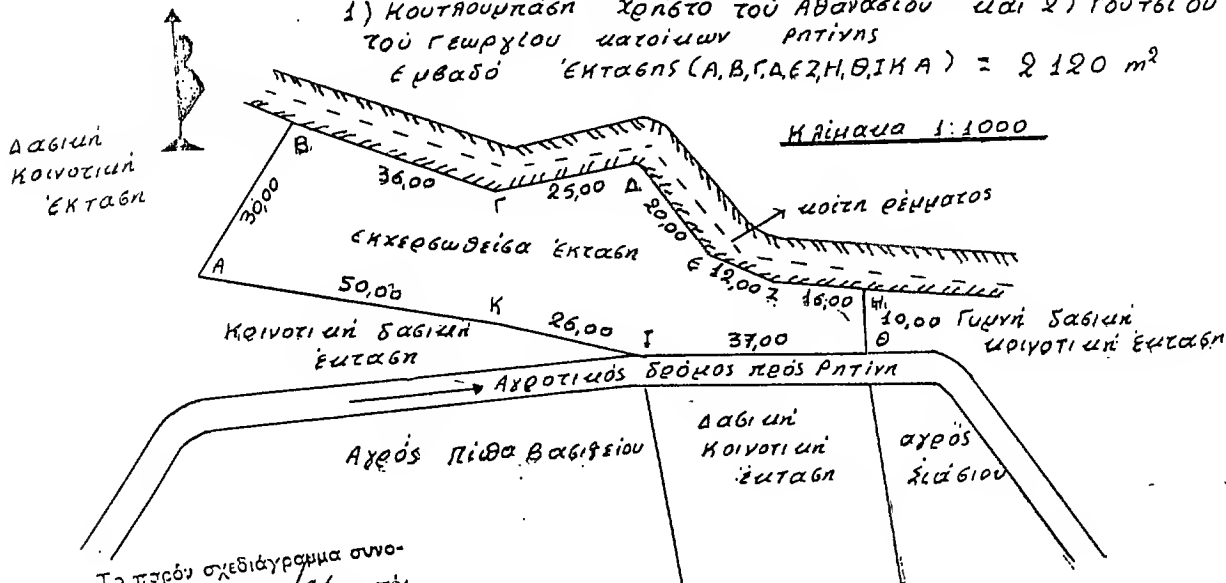 1) Κουτλουμπάση Χρήστο τού Αθανασίου και 2) Γούτσιου
τού Γεωργίου κατοίκων Ρητίνης
Εμβαδό Έκτασης (Α,Β,Γ,Δ,Ε,Ζ,Η,Θ,Ι Κ Α) = 2 120 m²
Κλίμακα 1:1000
Δασική
Κοινοτική
Έκταση
Β.
36,00
Γ
25,00
Δ.
30,00
20,00
κοίτη ρέμματος
εκχερσωθείσα Έκταση
Α
Ε
12,00
Ζ
16,00
Η.
50,00
Κ
26,00
Ι
37,00
10,00
Θ
Γυμνή δασική
κοινοτική έκταση
Κοινοτική δασική
έκταση
Αγροτικός δρόμος πρός Ρητίνη
Αγρός Πίθα Βασιλείου
Δασική
Κοινοτική
έκταση
αγρός
Σιάσιου
Το παρόν σχεδιάγραμμα συνο-